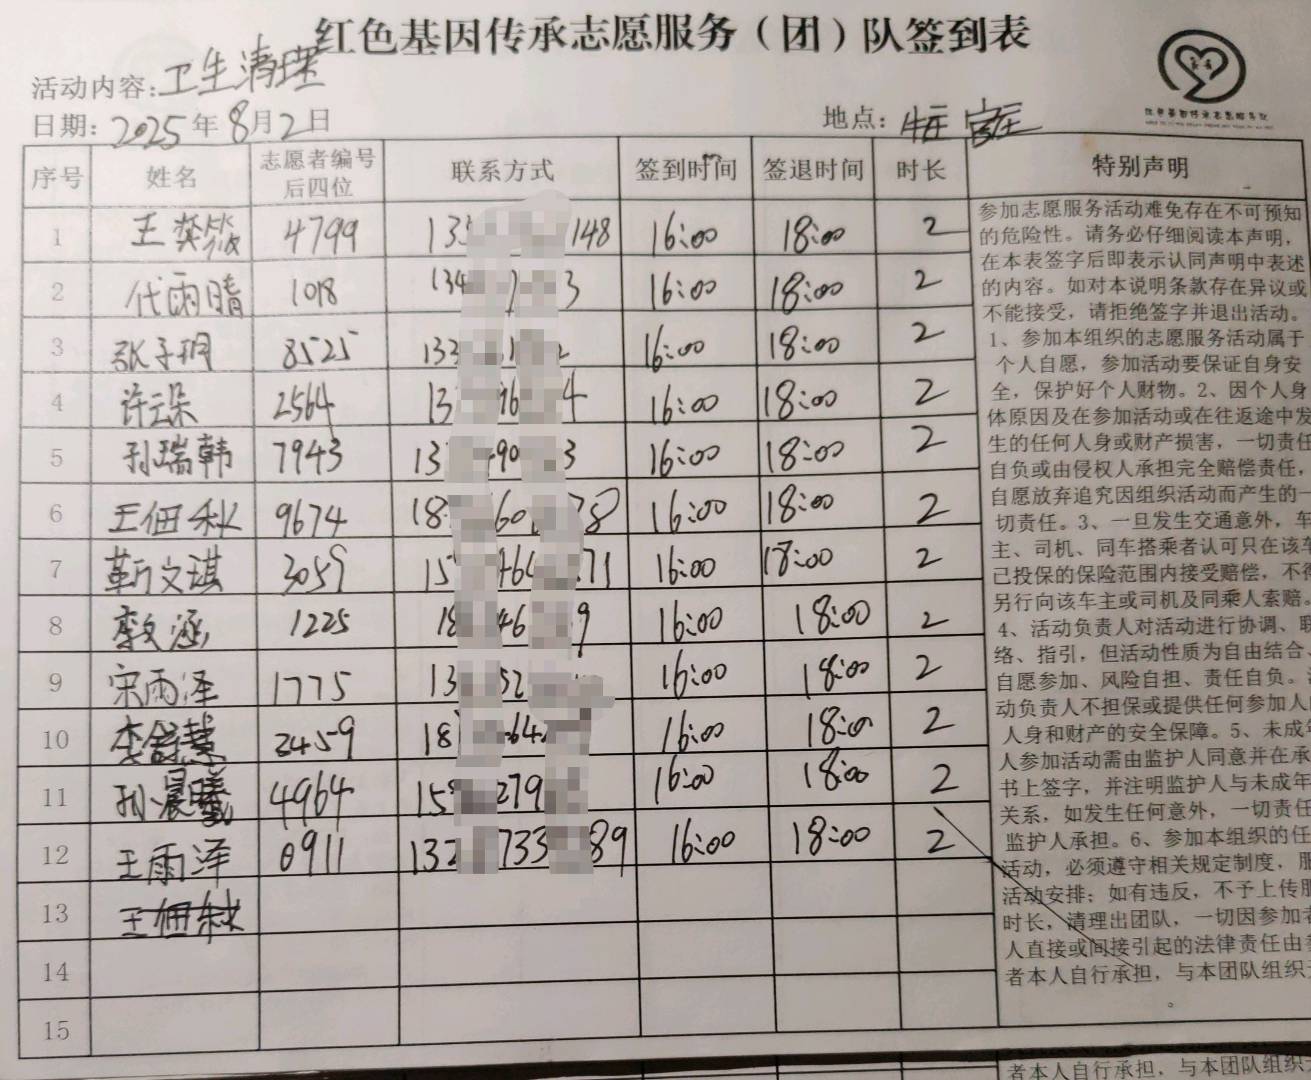 红色基因传承志愿服务（团）队签到表
活动内容：卫生清理
日期：2025年8月2日 地点：
序号 姓名 志愿者编号后四位 联系方式 签到时间 签退时间 时长 特别声明
1 王 4799 13 148 16:00 18:00 2
2 代雨晴 1018 134 3 16:00 18:00 2
3 张子玥 8525 133 16:00 18:00 2
4 许云朵 2564 13 4 16:00 18:00 2
5 孙瑞韩 7943 13 490 3 16:00 18:00 2
6 王佃秋 9674 18 60 8 16:00 18:00 2
7 靳文琪 3059 15 464 71 16:00 18:00 2
8 涵 1225 18 46 9 16:00 18:00 2
9 宋雨泽 1775 13 52 16:00 18:00 2
10 李舒慧 2459 18 64 16:00 18:00 2
11 孙晨曦 4964 15 279 16:00 18:00 2
12 王雨泽 0911 132 733 89 16:00 18:00 2
13 王佃秋
14
15
参加志愿服务活动难免存在不可预知
的危险性。请务必仔细阅读本声明，
在本表签字后即表示认同声明中表述
的内容。如对本说明条款存在异议或
不能接受，请拒绝签字并退出活动。
1、参加本组织的志愿服务活动属于
个人自愿，参加活动要保证自身安
全，保护好个人财物。2、因个人身
体原因及在参加活动或在往返途中发
生的任何人身或财产损害，一切责任
自负或由侵权人承担完全赔偿责任，
自愿放弃追究因组织活动而产生的一
切责任。3、一旦发生交通意外，车
主、司机、同车搭乘者认可只在该车
己投保的保险范围内接受赔偿，不得
另行向该车主或司机及同乘人索赔。
4、活动负责人对活动进行协调、联
络、指引，但活动性质为自由结合、
自愿参加、风险自担、责任自负。
动负责人不担保或提供任何参加人
人身和财产的安全保障。5、未成年
人参加活动需由监护人同意并在承
书上签字，并注明监护人与未成年
关系，如发生任何意外，一切责任
监护人承担。6、参加本组织的任
活动，必须遵守相关规定制度，服
活动安排；如有违反，不予上传服
时长，清理出团队，一切因参加者
人直接或间接引起的法律责任由参
者本人自行承担，与本团队组织无
。
者本人自行承担，与本团队组织